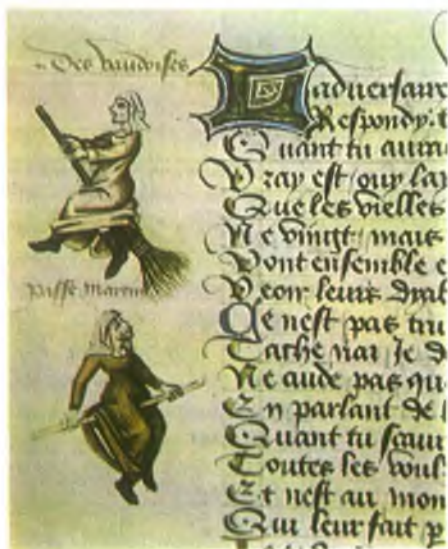 Des vaudoises
Passe Martin
L aduersaire
Respondy t
Quant tu auras
Vray est ouy lay
Que les vielles
Ne vingt mais
Vont ensemble e
Veoir leurs dyab
Ce nest pas tru
Cathe nar Je d
Ne cude pas qu
En parlant de l
Quant tu scaur
Toutes les voul
Et nest au mon
Qui leur fait p